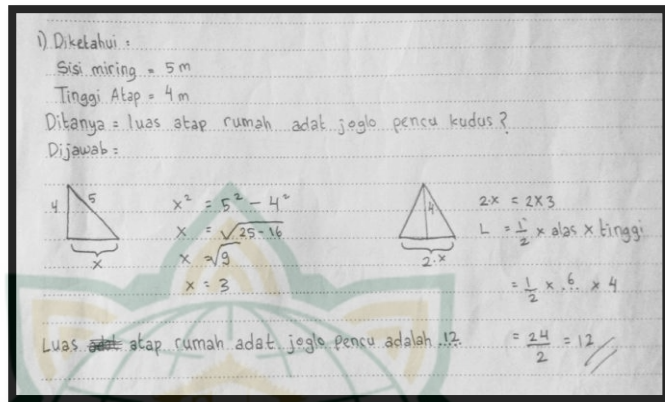 1) Diketahui :
Sisi miring = 5 m
Tinggi Atap = 4 m
Ditanya = luas atap rumah adat joglo pencu kudus?
Dijawab =
4
5
x
x² = 5² - 4²
x = √25-16
x = √9
x = 3
4
2·x
2·x = 2x3
L = 1/2 x alas x tinggi
= 1/2 x 6 x 4
= 24/2 = 12
Luas atap rumah adat joglo pencu adalah 12